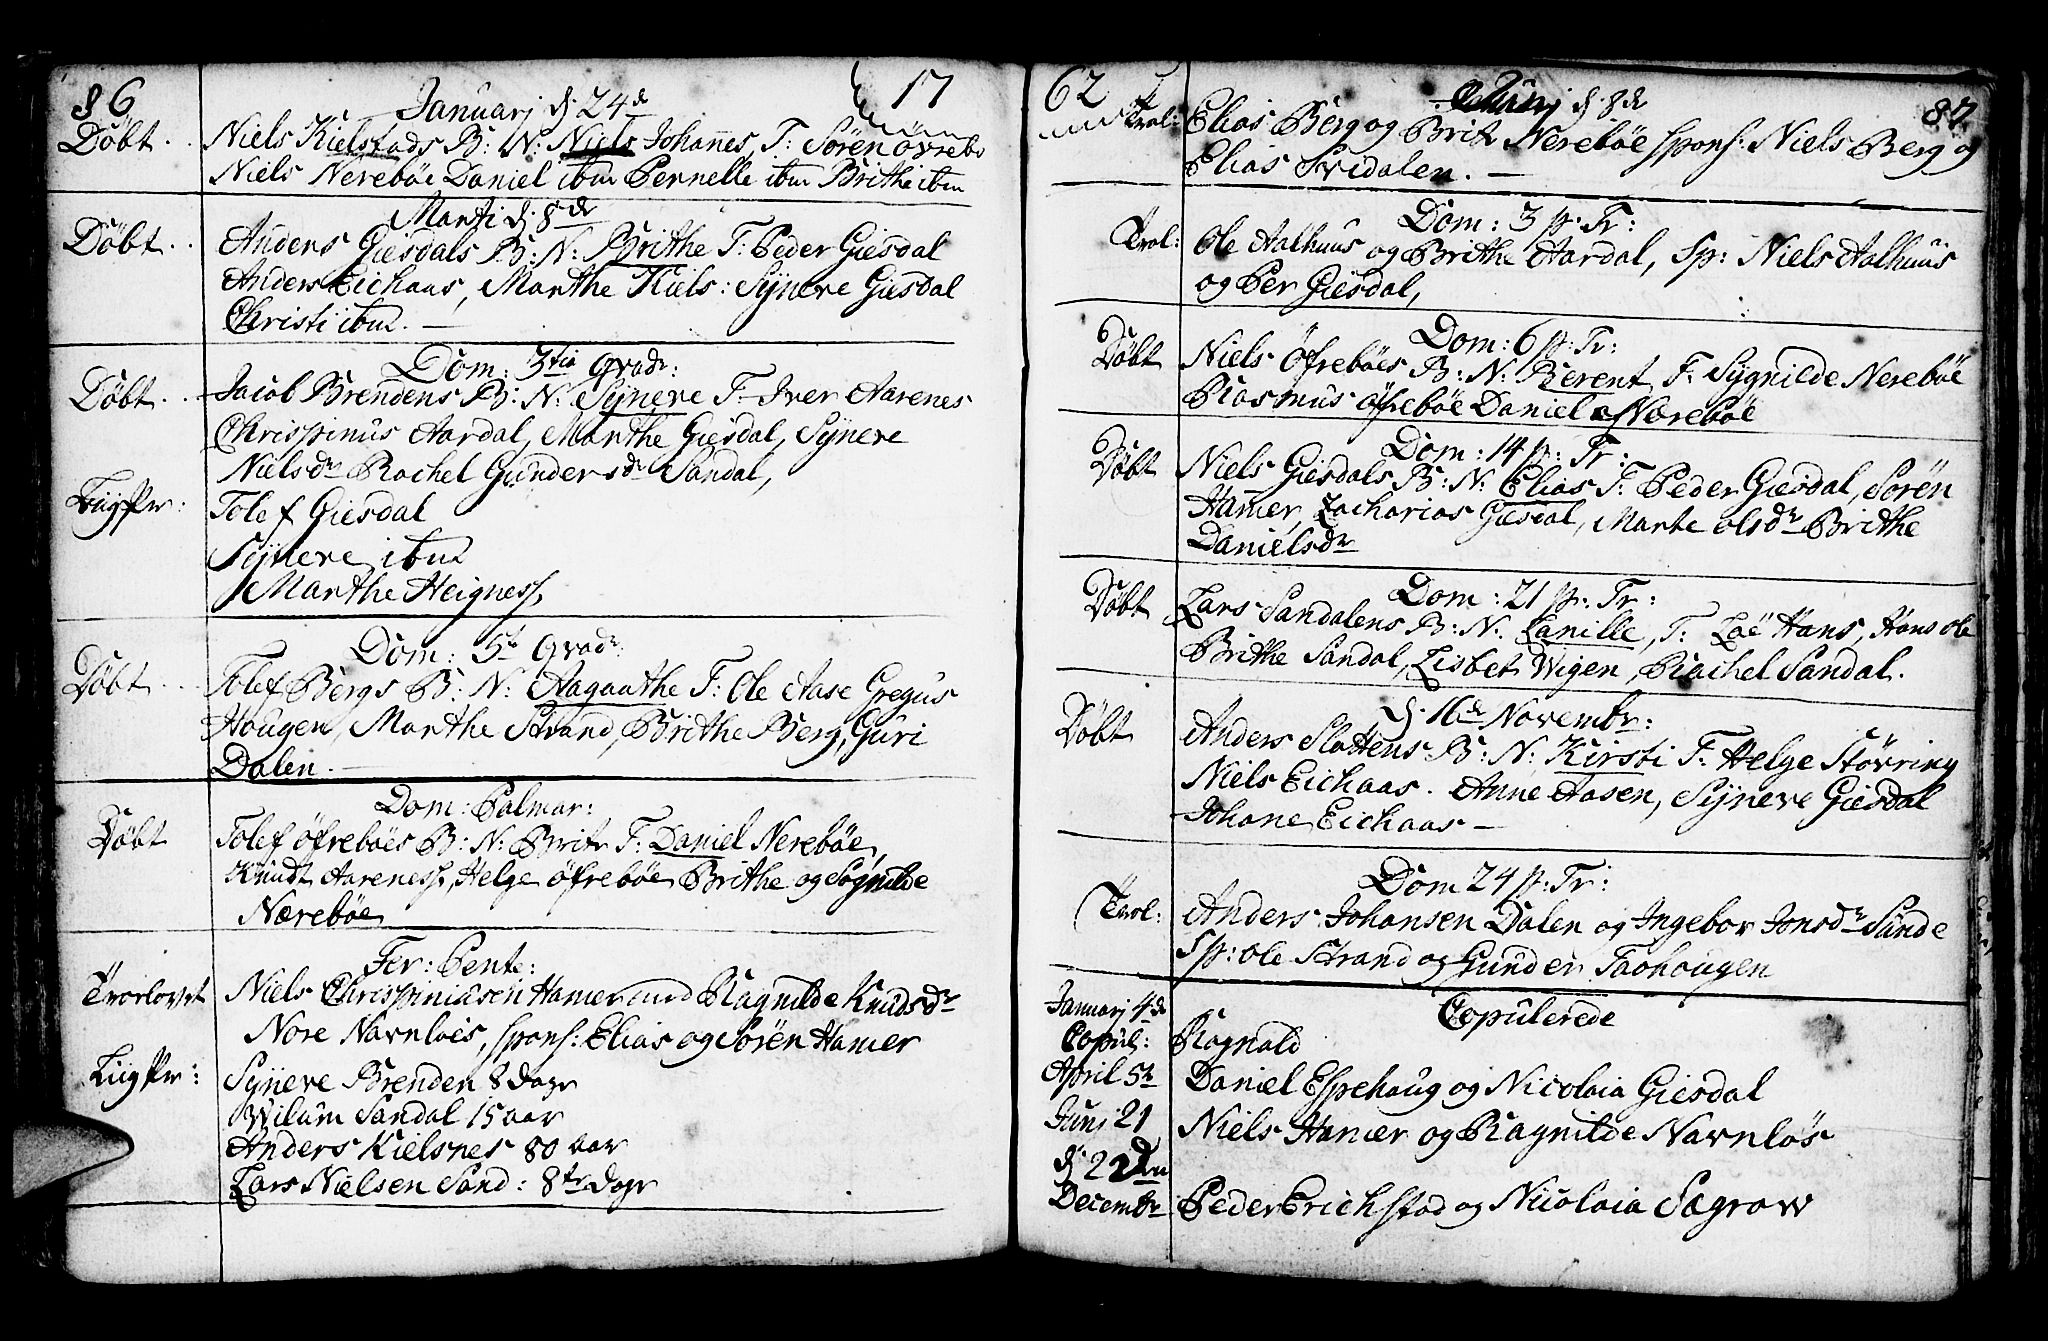 86
17
Januarj d. 24de
Döbt. Niels Kielstads B: N: Niels Johannes, F: Sören Övrebö
Niels Nereböe Daniel ibm Pernelle ibm Brithe ibm
Marti d. 8de
Döbt. Anders Giesdals B: N: Brithe F: Peder Giesdal
Anders Eichaas, Marthe Kiels: Syneve Giesdal
Christi ibm. —
Dom: 3tia qvadr:
Döbt. Jacob Brendens B: N: Syneve F: Iver Aarenes
Chrispinus Aardal, Marthe Giesdal, Syneve
Nielsdr Rachel Gundersdr Sandal,
Liigpr: Tolef Giesdal
Syneve ibm
Marthe Heigness,
Dom: 5t qvadr:
Döbt. Tolef Bergs B: N: Aagaathe F: Ole Aase Gregus
Hougen, Marthe Strand, Brithe Berg, Guri
Dalen. —
Dom: Palmar:
Döbt Tolef Öfreböes B: N: Brite F: Daniel Nereböe,
Knudt Aareness, Helge Öfreböe Brithe og Sögnilde
Næreböe
Fer: Pente:
Trolovet Niels Chrispiniusen Hamer med Ragnilde Knudsdr
Nore Navnloes, spons: Elias og Sören Hamer
Liigpr: Syneve Brenden 8 dage
Wilum Sandal 15 aar
Anders Kielsnes 80 aar
Lars Nielsen Sand: 8te dage
62
87
Junj d. 8de
Trol: Elias Berg og Brite Nereböe spons: Niels Berg og
Elias Svidalen. —
Dom: 3 p: Tr:
Trol: Ole Aalhuus og Brithe Aardal, Sp: Niels Aalhuus
og Per Giesdal,
Dom: 6 p: Tr:
Döbt Niels Öfreböes B: N: Berent, F: Sygnilde Nereböe
Rasmus Öfreböe Daniel Næreböe
Dom: 14 p: Tr:
Döbt Niels Giesdals B: N: Elias F: Peder Giesdal, Sören
Hamer, Zacharias Giesdal, Marte Olsdr Brithe
Danielsdr
Dom: 21 p: Tr:
Döbt Lars Sandalens B: N: Lanille, F: Zoë Hans, Hans Ole
Brithe Sandal, Lisbet Wigen, Rachel Sandal.
d. 16de Novembr:
Döbt Anders Slottens B: N: Kirsti F: Helge Stövring
Niels Eichaas. Anne Aasen, Syneve Giesdal
Johane Eichaas —
Dom 24 p: Tr:
Trol: Anders Johansen Dalen og Ingebor Jonsdr Sande
Sp: Ole Strand og Gunder Taohougen
Copulerede
Januarj 4de
Copul: Ragnald
April 5te Daniel Espehaug og Nicolaia Giesdal
Junj 21 Niels Hamer og Ragnilde Navnlös
d. 22den
Decembr Peder Erichstad og Nicolaia Sægrow